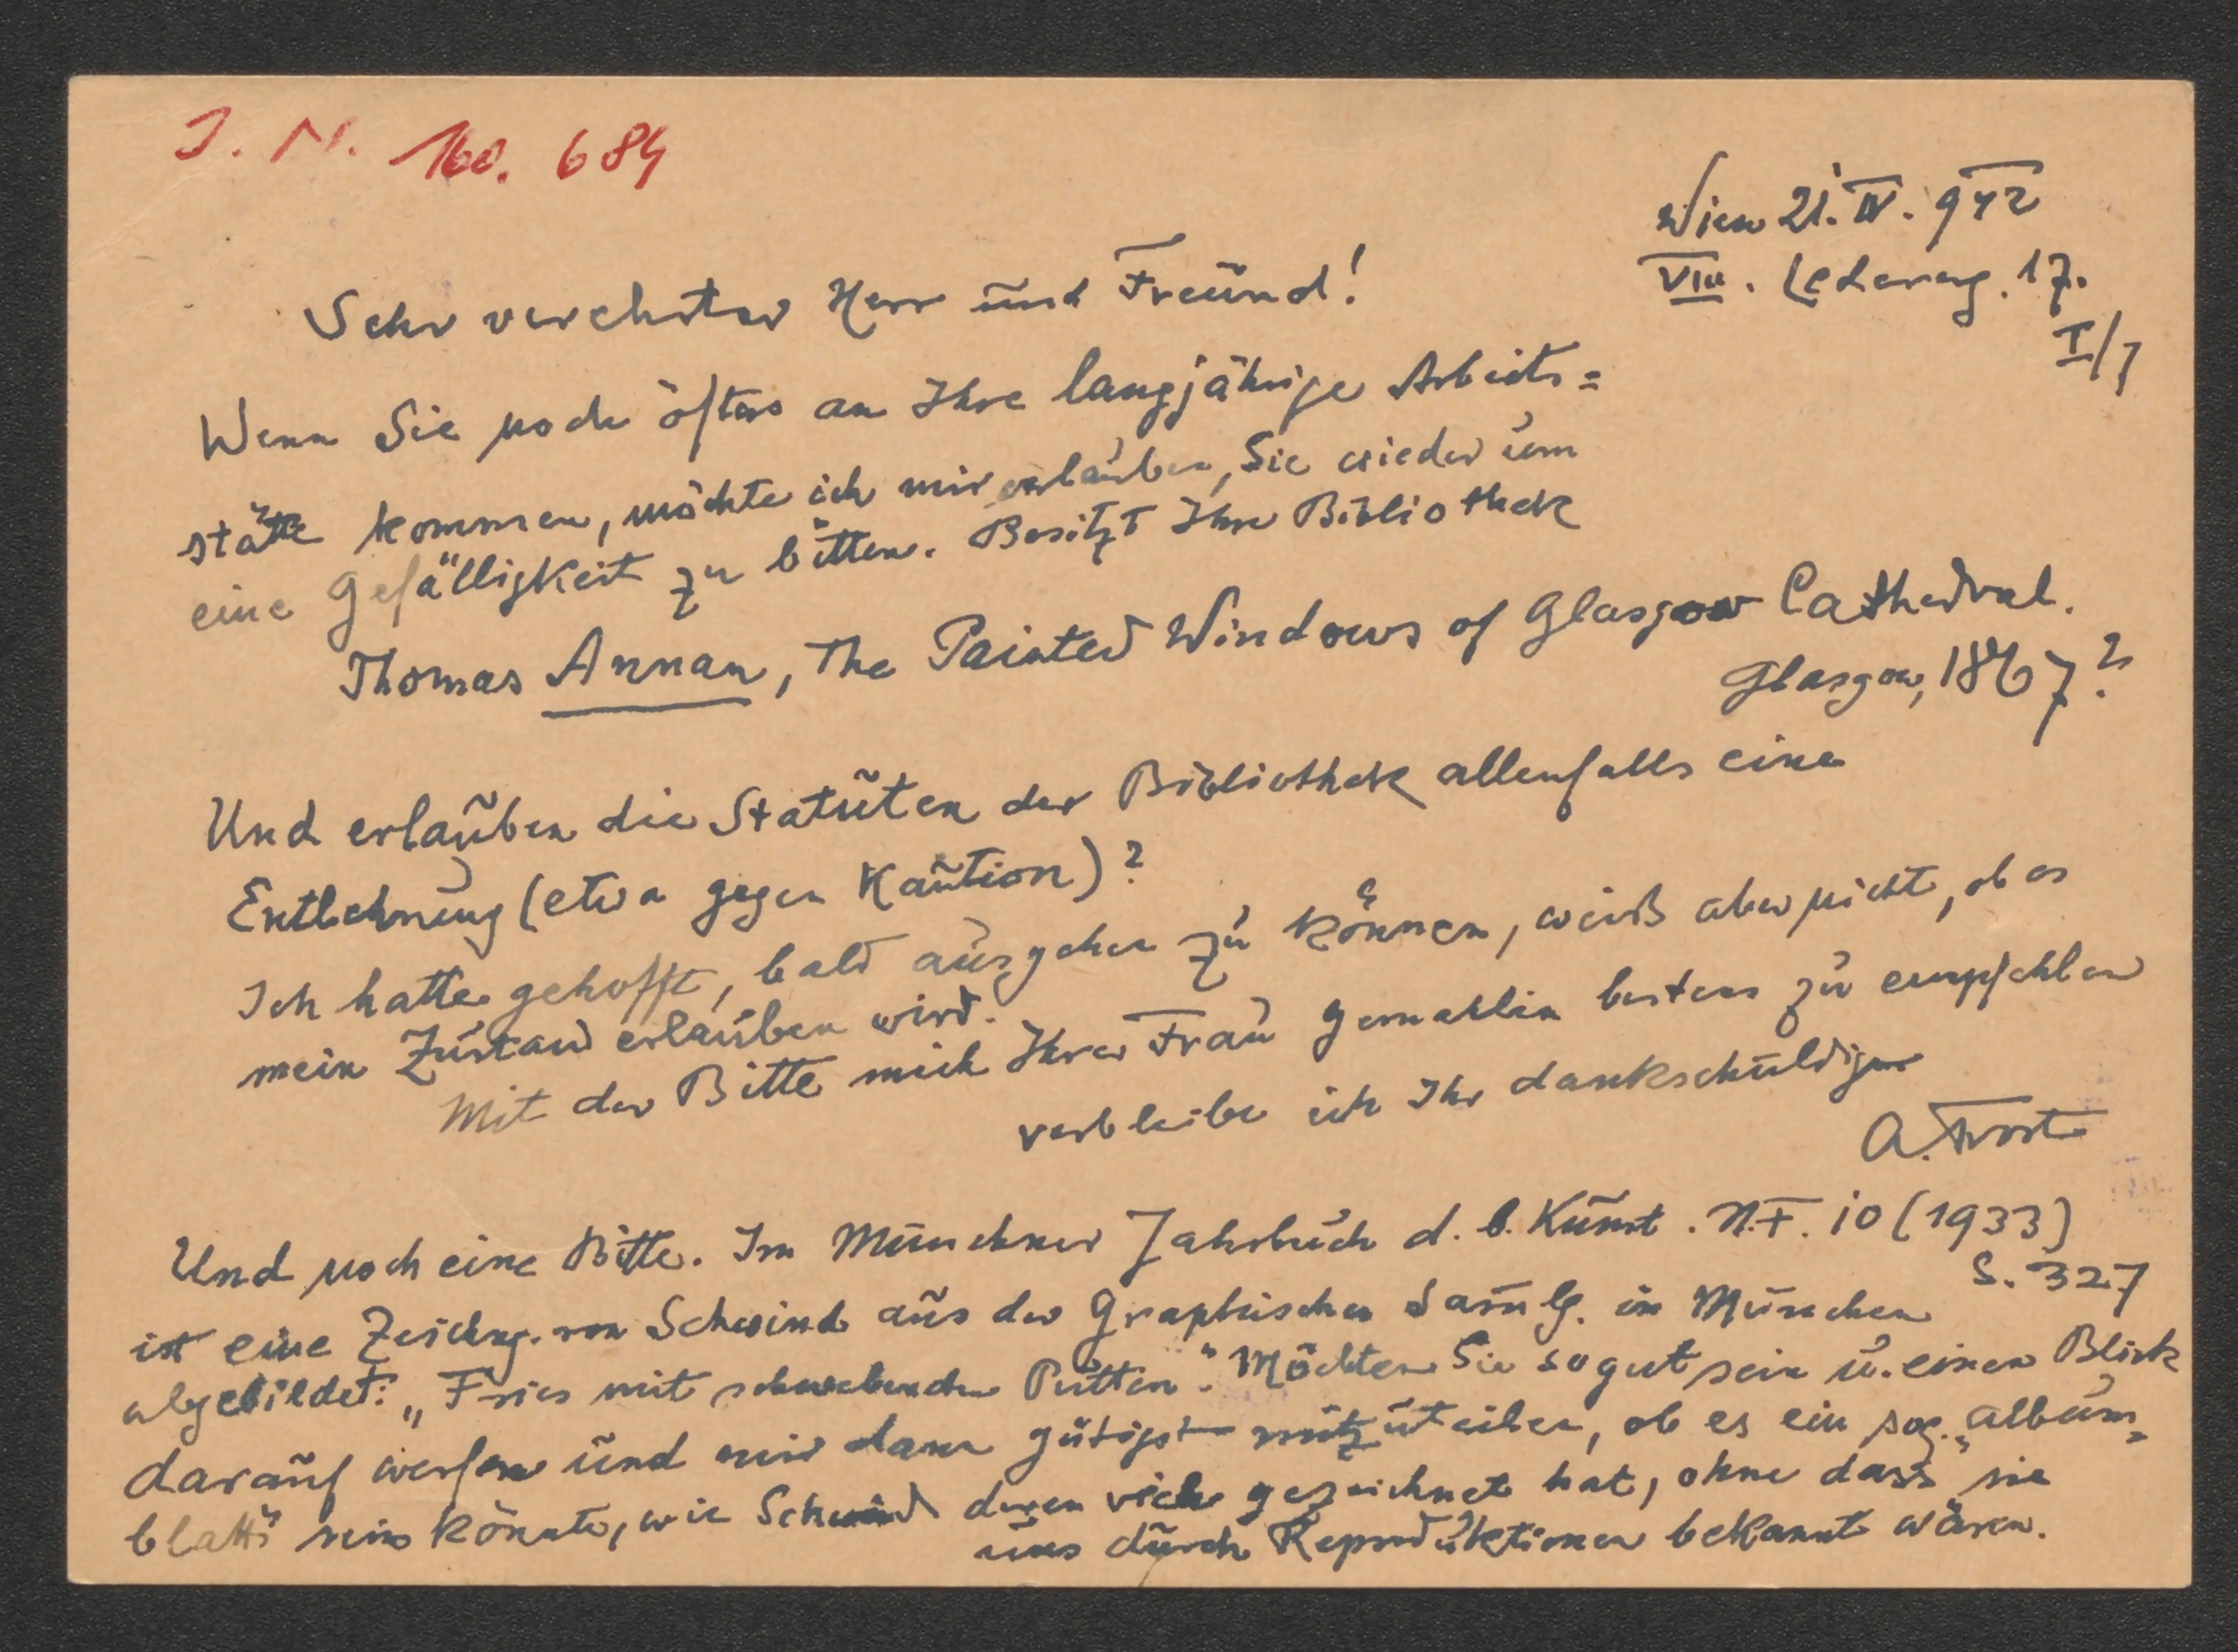 J. N. 160.684
Wien 21. IV. 942
VIII. Ledererg. 17.
I/7
Sehr verehrter Herr und Freund!
Wenn Sie noch öfters an Ihre langjährige Arbeits=
stätte kommen, möchte ich mir erlauben, Sie wieder um
eine Gefälligkeit zu bitten. Besitzt Ihre Bibliothek
Thomas Annan, The Painted Windows of Glasgow Cathedral.
Glasgow, 1867?
Und erlauben die Statuten der Bibliothek allenfalls eine
Entlehnung (etwa gegen Kaution)?
Ich hatte gehofft, bald ausgehen zu können, weiß aber nicht, ob es
mein Zustand erlauben wird.
Mit der Bitte mich Ihrer Frau Gemahlin bestens zu empfehlen
verbleibe ich Ihr dankschuldiger
A. Trost
Und noch eine Bitte. Im Münchner Jahrbuch d. b. Kunst. N.F. 10 (1933)
S. 327
ist eine Zeichng. von Schwind aus der Graphischen Samlg. in München
abgebildet: „Fries mit schwebenden Putten“. Möchten Sie so gut sein u. einen Blick
darauf werfen und mir dann gütigst mitzuteilen, ob es ein sog. „Album=
blatt“ sein könnte, wie Schwind deren viele gezeichnet hat, ohne dass sie
uns durch Reproduktionen bekannt wären.